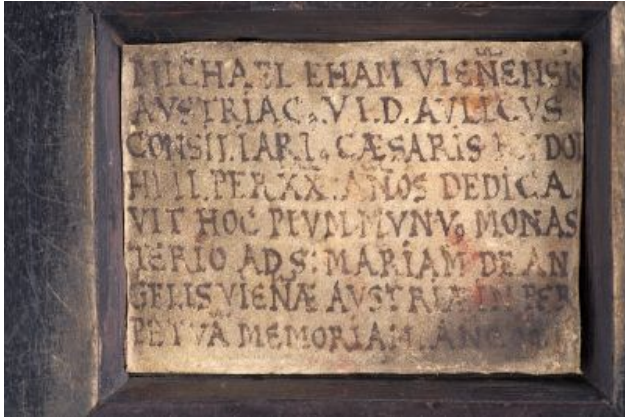 MICHAEL EHAM VIEN̄ENSIS
AVSTRIAC9. V.I.D. AVLICVS
CONSILIARI9 CÆSARIS
PER XX. AN̄OS DEDICA
VIT HOC PIVM MVNV9 MONAS
TERIO AD S: MARIAM DE AN
GELIS VIEN̄Æ AVSTRIÆ IN PER
PETVA MEMORIAM.